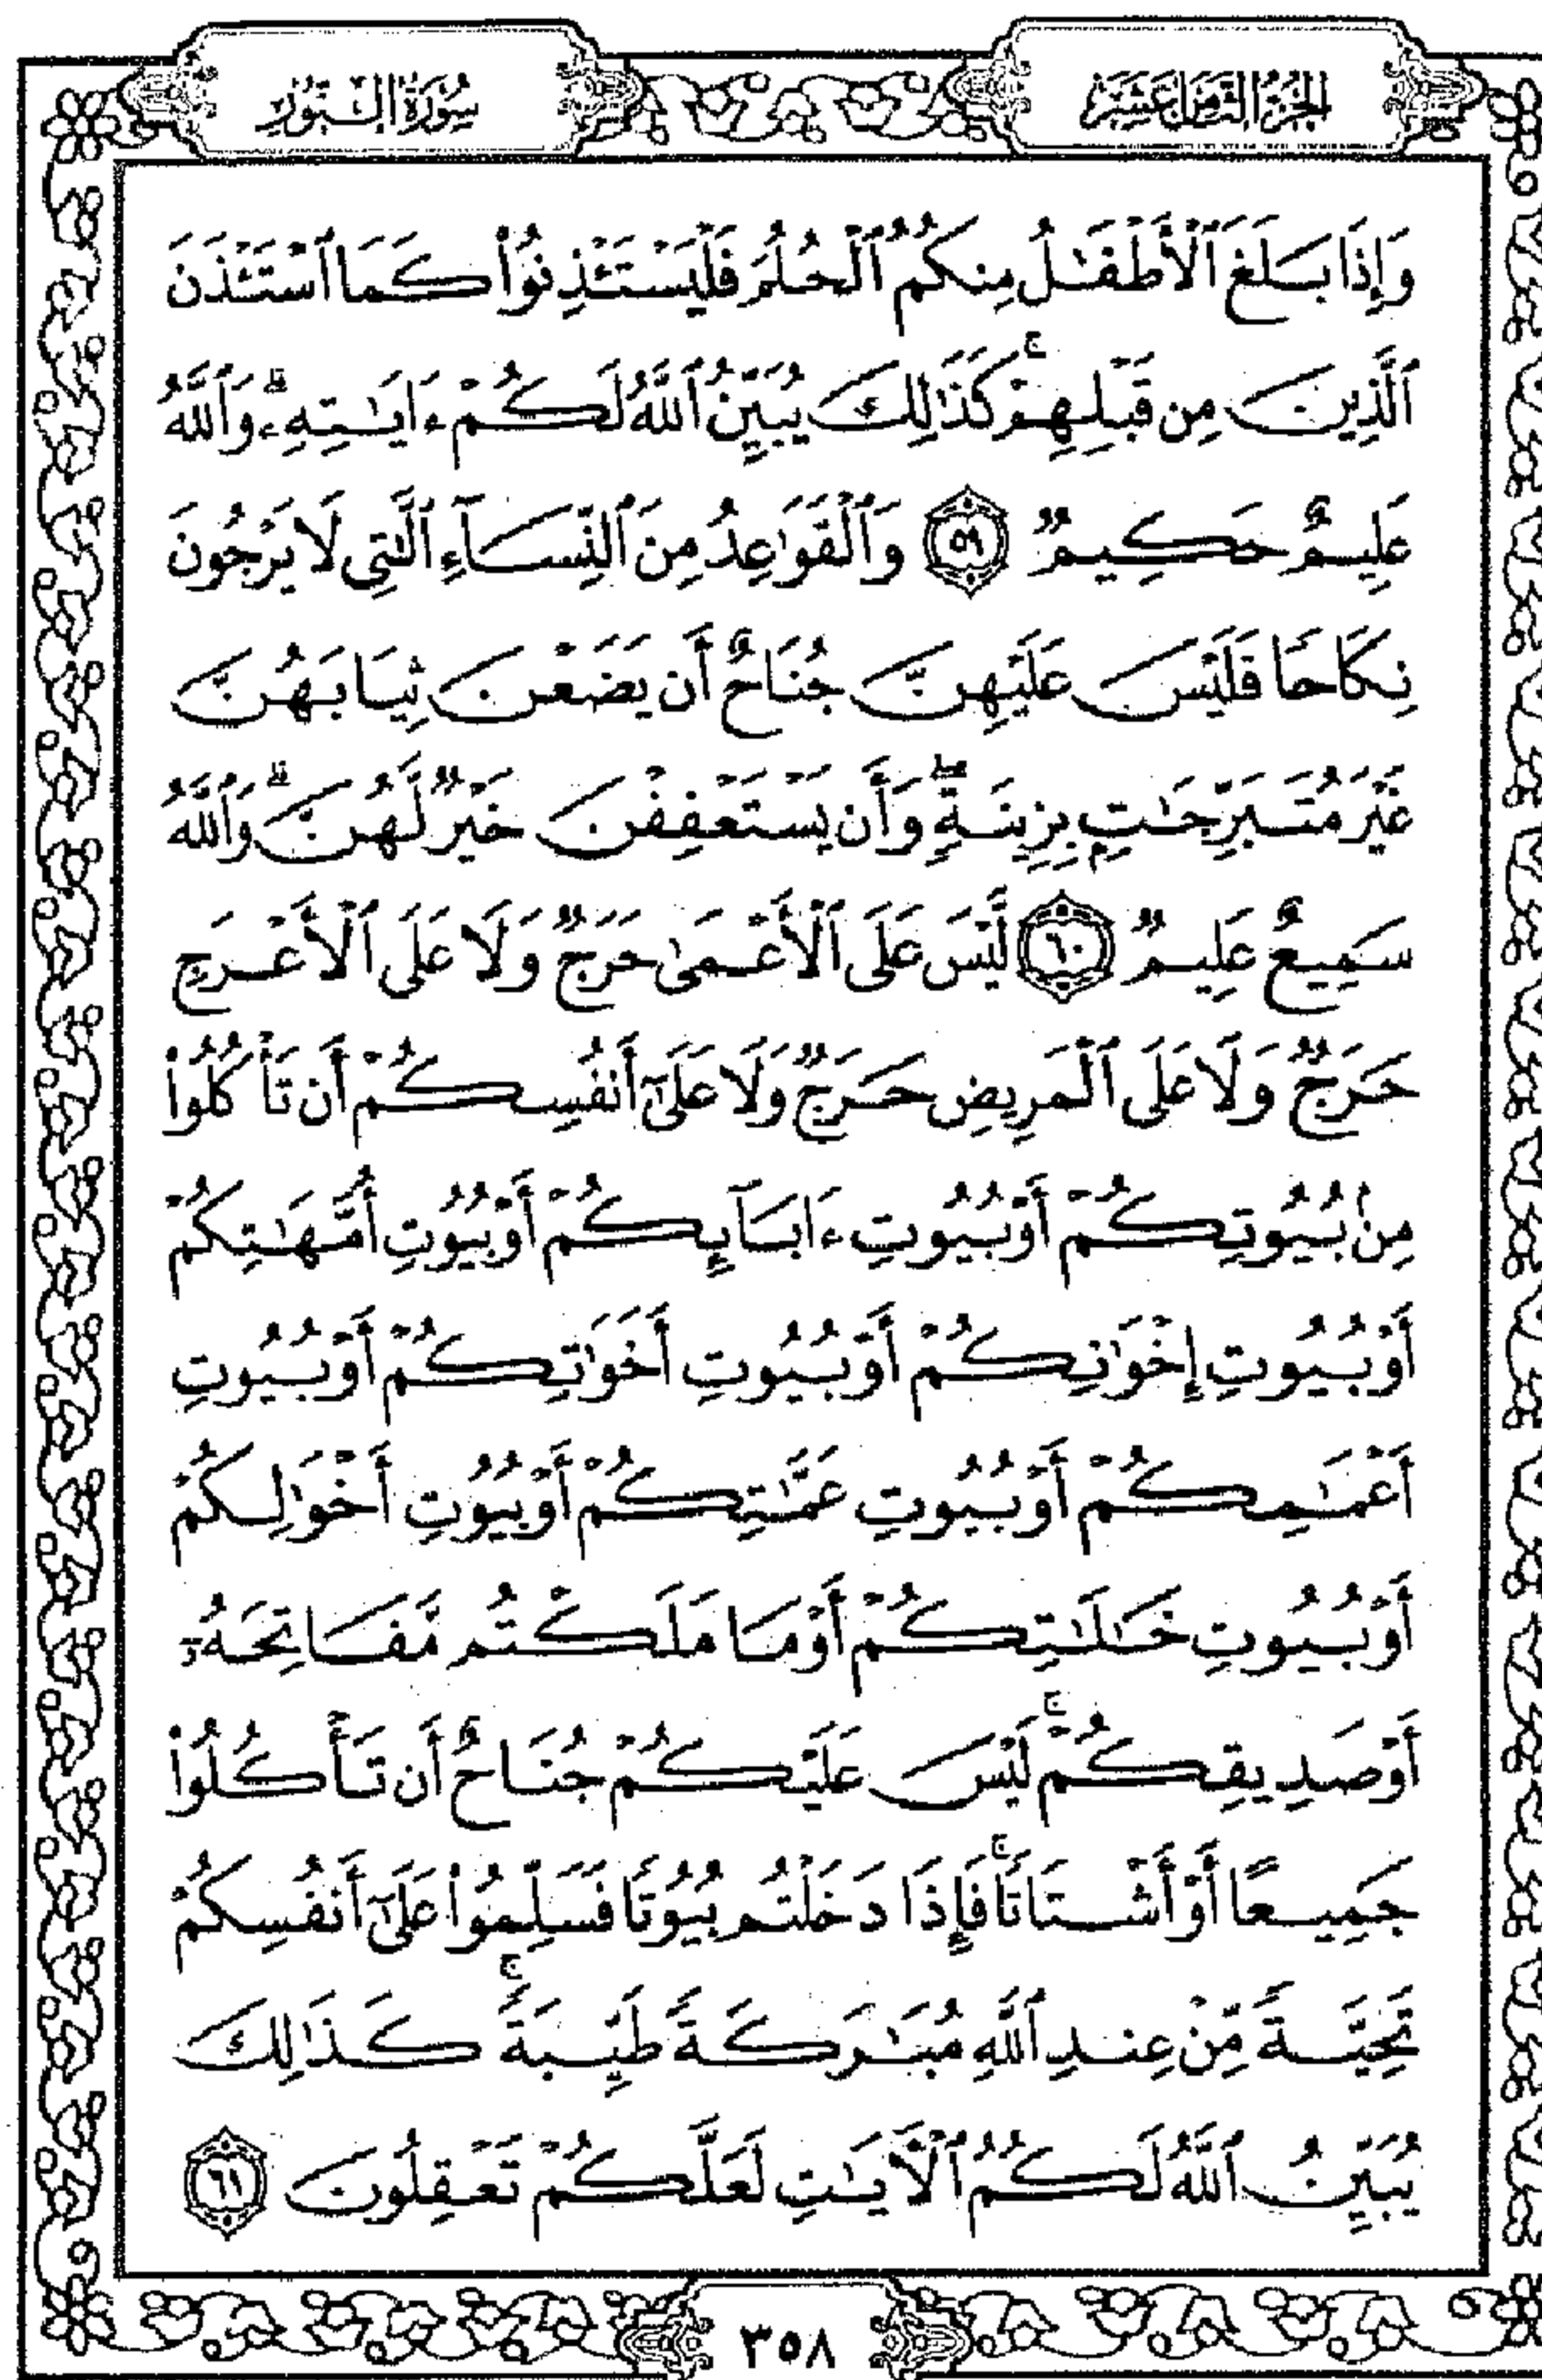 الجزء الثامن عشر
سورة النور
وَإِذَا بَلَغَ ٱلْأَطْفَٰلُ مِنكُمُ ٱلْحُلُمَ فَلْيَسْتَـْٔذِنُوا۟ كَمَا ٱسْتَـْٔذَنَ
ٱلَّذِينَ مِن قَبْلِهِمْ ۚ كَذَٰلِكَ يُبَيِّنُ ٱللَّهُ لَكُمْ ءَايَٰتِهِۦ ۗ وَٱللَّهُ
عَلِيمٌ حَكِيمٌ ٥٩ وَٱلْقَوَٰعِدُ مِنَ ٱلنِّسَآءِ ٱلَّٰتِى لَا يَرْجُونَ
نِكَاحًا فَلَيْسَ عَلَيْهِنَّ جُنَاحٌ أَن يَضَعْنَ ثِيَابَهُنَّ
غَيْرَ مُتَبَرِّجَٰتٍۭ بِزِينَةٍ ۖ وَأَن يَسْتَعْفِفْنَ خَيْرٌ لَّهُنَّ ۗ وَٱللَّهُ
سَمِيعٌ عَلِيمٌ ٦٠ لَّيْسَ عَلَى ٱلْأَعْمَىٰ حَرَجٌ وَلَا عَلَى ٱلْأَعْرَجِ
حَرَجٌ وَلَا عَلَى ٱلْمَرِيضِ حَرَجٌ وَلَا عَلَىٰٓ أَنفُسِكُمْ أَن تَأْكُلُوا۟
مِنۢ بُيُوتِكُمْ أَوْ بُيُوتِ ءَابَآئِكُمْ أَوْ بُيُوتِ أُمَّهَٰتِكُمْ
أَوْ بُيُوتِ إِخْوَٰنِكُمْ أَوْ بُيُوتِ أَخَوَٰتِكُمْ أَوْ بُيُوتِ
أَعْمَٰمِكُمْ أَوْ بُيُوتِ عَمَّٰتِكُمْ أَوْ بُيُوتِ أَخْوَٰلِكُمْ
أَوْ بُيُوتِ خَٰلَٰتِكُمْ أَوْ مَا مَلَكْتُم مَّفَاتِحَهُۥٓ
أَوْ صَدِيقِكُمْ ۚ لَيْسَ عَلَيْكُمْ جُنَاحٌ أَن تَأْكُلُوا۟
جَمِيعًا أَوْ أَشْتَاتًا ۚ فَإِذَا دَخَلْتُم بُيُوتًا فَسَلِّمُوا۟ عَلَىٰٓ أَنفُسِكُمْ
تَحِيَّةً مِّنْ عِندِ ٱللَّهِ مُبَٰرَكَةً طَيِّبَةً ۚ كَذَٰلِكَ
يُبَيِّنُ ٱللَّهُ لَكُمُ ٱلْءَايَٰتِ لَعَلَّكُمْ تَعْقِلُونَ ٦١
٣٥٨